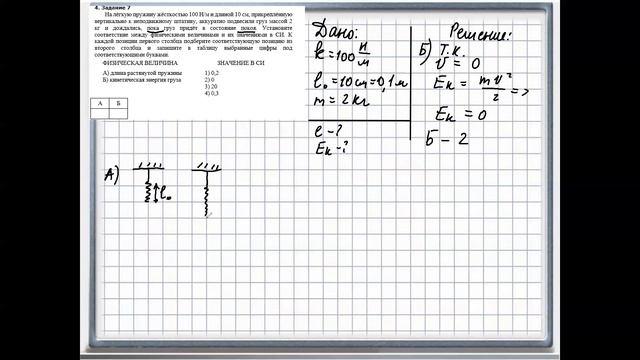 4. Задание 7
На лёгкую пружину жёсткостью 100 Н/м и длиной 10 см, прикреплённую
вертикально к неподвижному штативу, аккуратно подвесили груз массой 2
кг и дождались, пока груз придёт в состояние покоя. Установите
соответствие между физическими величинами и их значениями в СИ. К
каждой позиции первого столбца подберите соответствующую позицию из
второго столбца и запишите в таблицу выбранные цифры под
соответствующими буквами.
ФИЗИЧЕСКАЯ ВЕЛИЧИНА ЗНАЧЕНИЕ В СИ
А) длина растянутой пружины 1) 0,2
Б) кинетическая энергия груза 2) 0
3) 20
4) 0,3
А Б
Дано:
k = 100 Н/м
l₀ = 10 см = 0,1 м
m = 2 кг
l - ?
Eк - ?
Решение:
Б) Т.к.
v = 0
Eк = mv²/2 =>
Eк = 0
Б - 2
А)
l₀